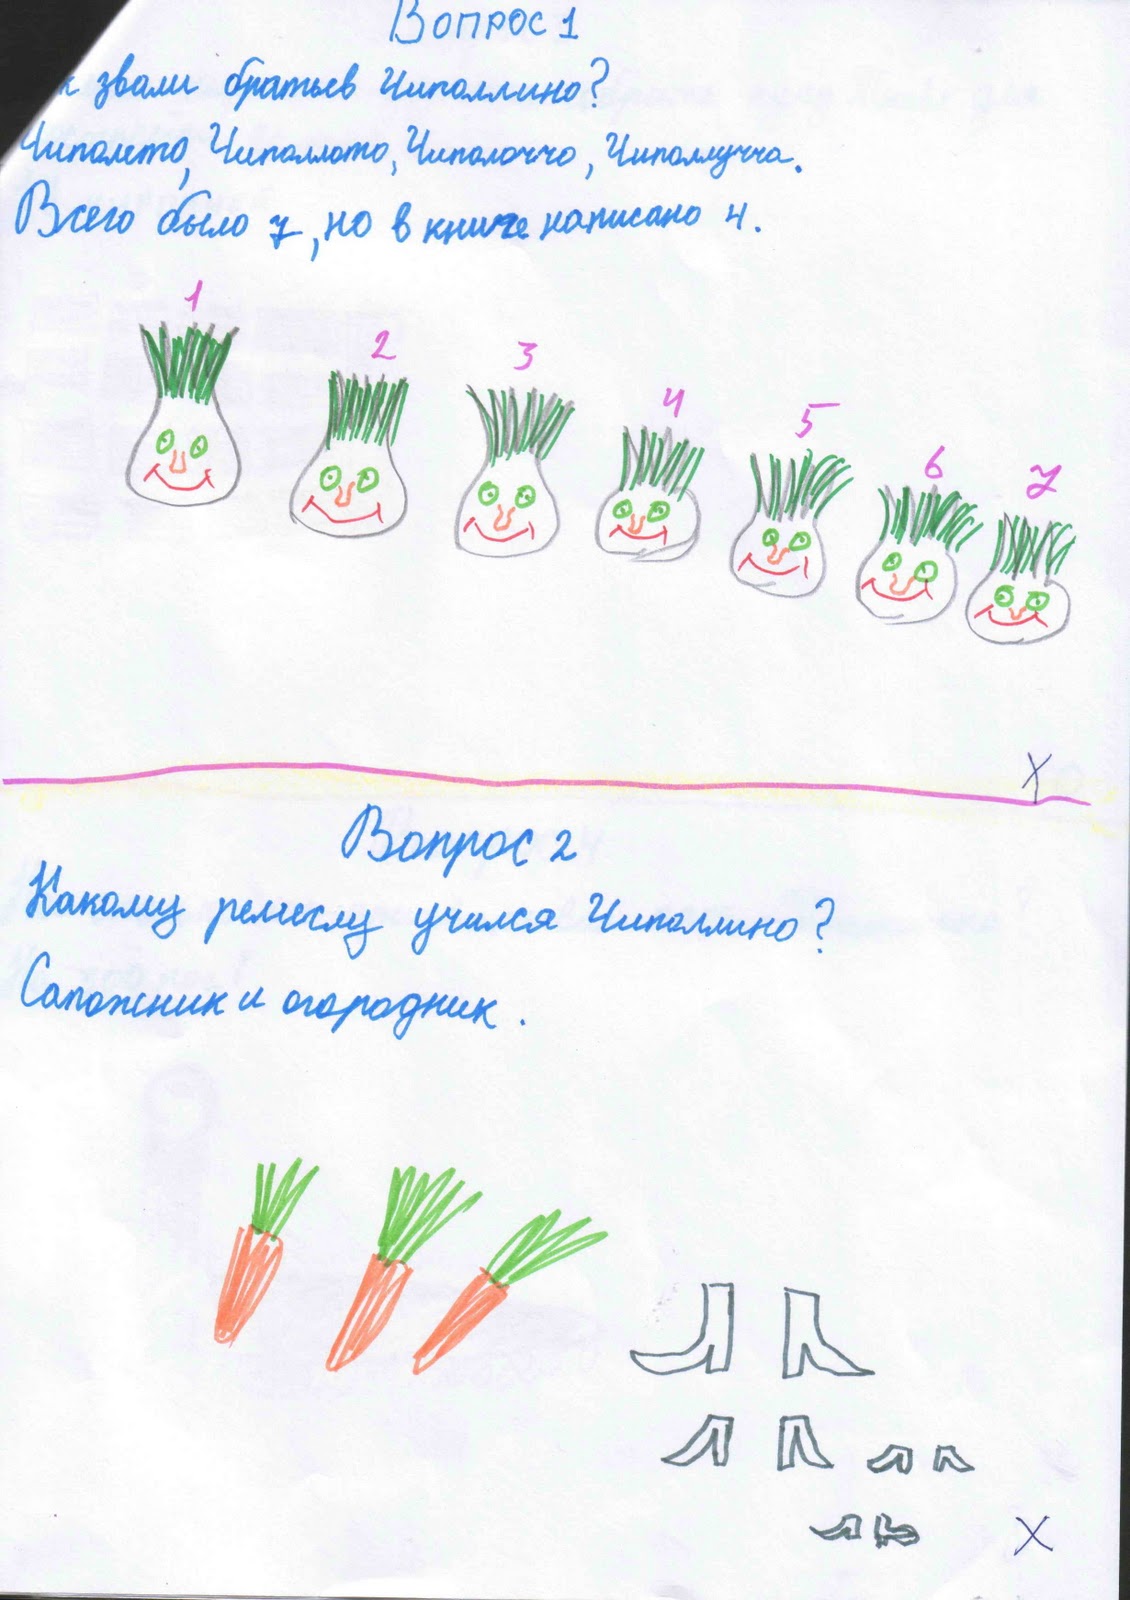 Вопрос 1
к звали братьев Чиполлино?
Чиполето, Чиполлото, Чиполоччо, Чиполлучча.
Всего было 7, но в книге написано 4.
1
2
3
4
5
6
7
X
Вопрос 2
Какому ремеслу учился Чиполлино?
Сапожник и огородник.
X